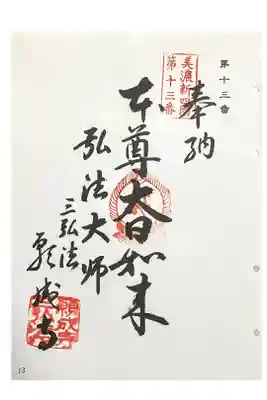 第十三番
奉納
美濃新四国
第十三番
本尊大日如来
弘法大师
三弘法
願成寺
13